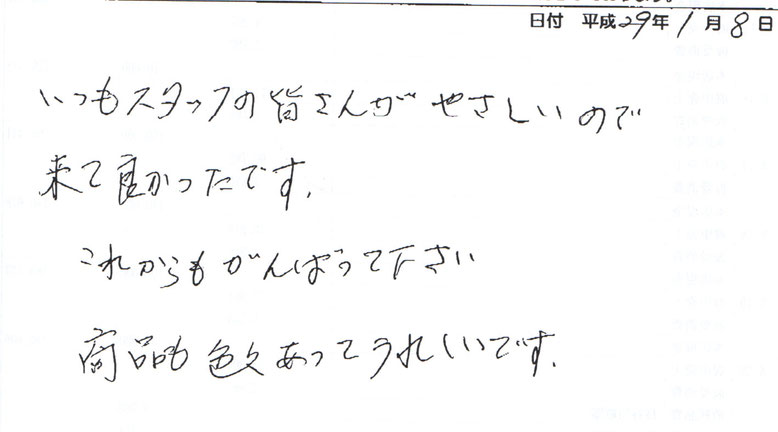 日付 平成29年1月8日
いつもスタッフの皆さんが やさしいので
来て良かったです.
これからもがんばって下さい
商品も色々あってうれしいです.